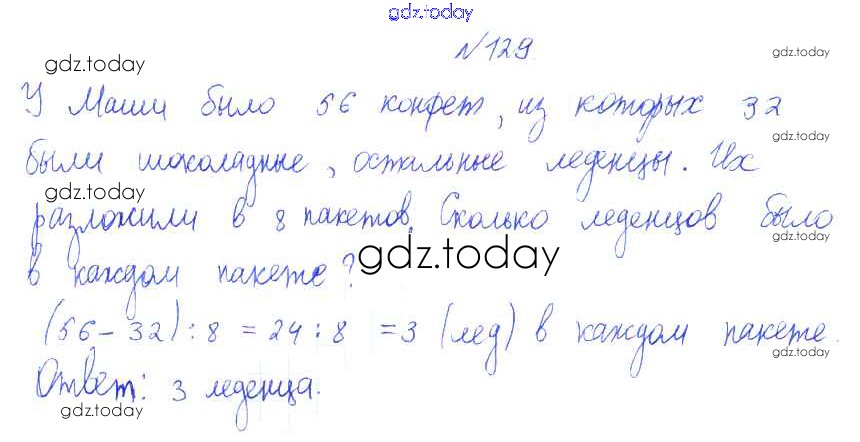 gdz.today
№129
gdz.today
gdz.today
У Маши было 56 конфет, из которых 32
gdz.today
были шоколадные, остальные леденцы. Их
gdz.today
разложили в 8 пакетов. Сколько леденцов было
gdz.today
gdz.today
в каждом пакете?
(56-32):8=24:8=3 (лед) в каждом пакете.
gdz.today
gdz.today
Ответ: 3 леденца.
gdz.today
gdz.today